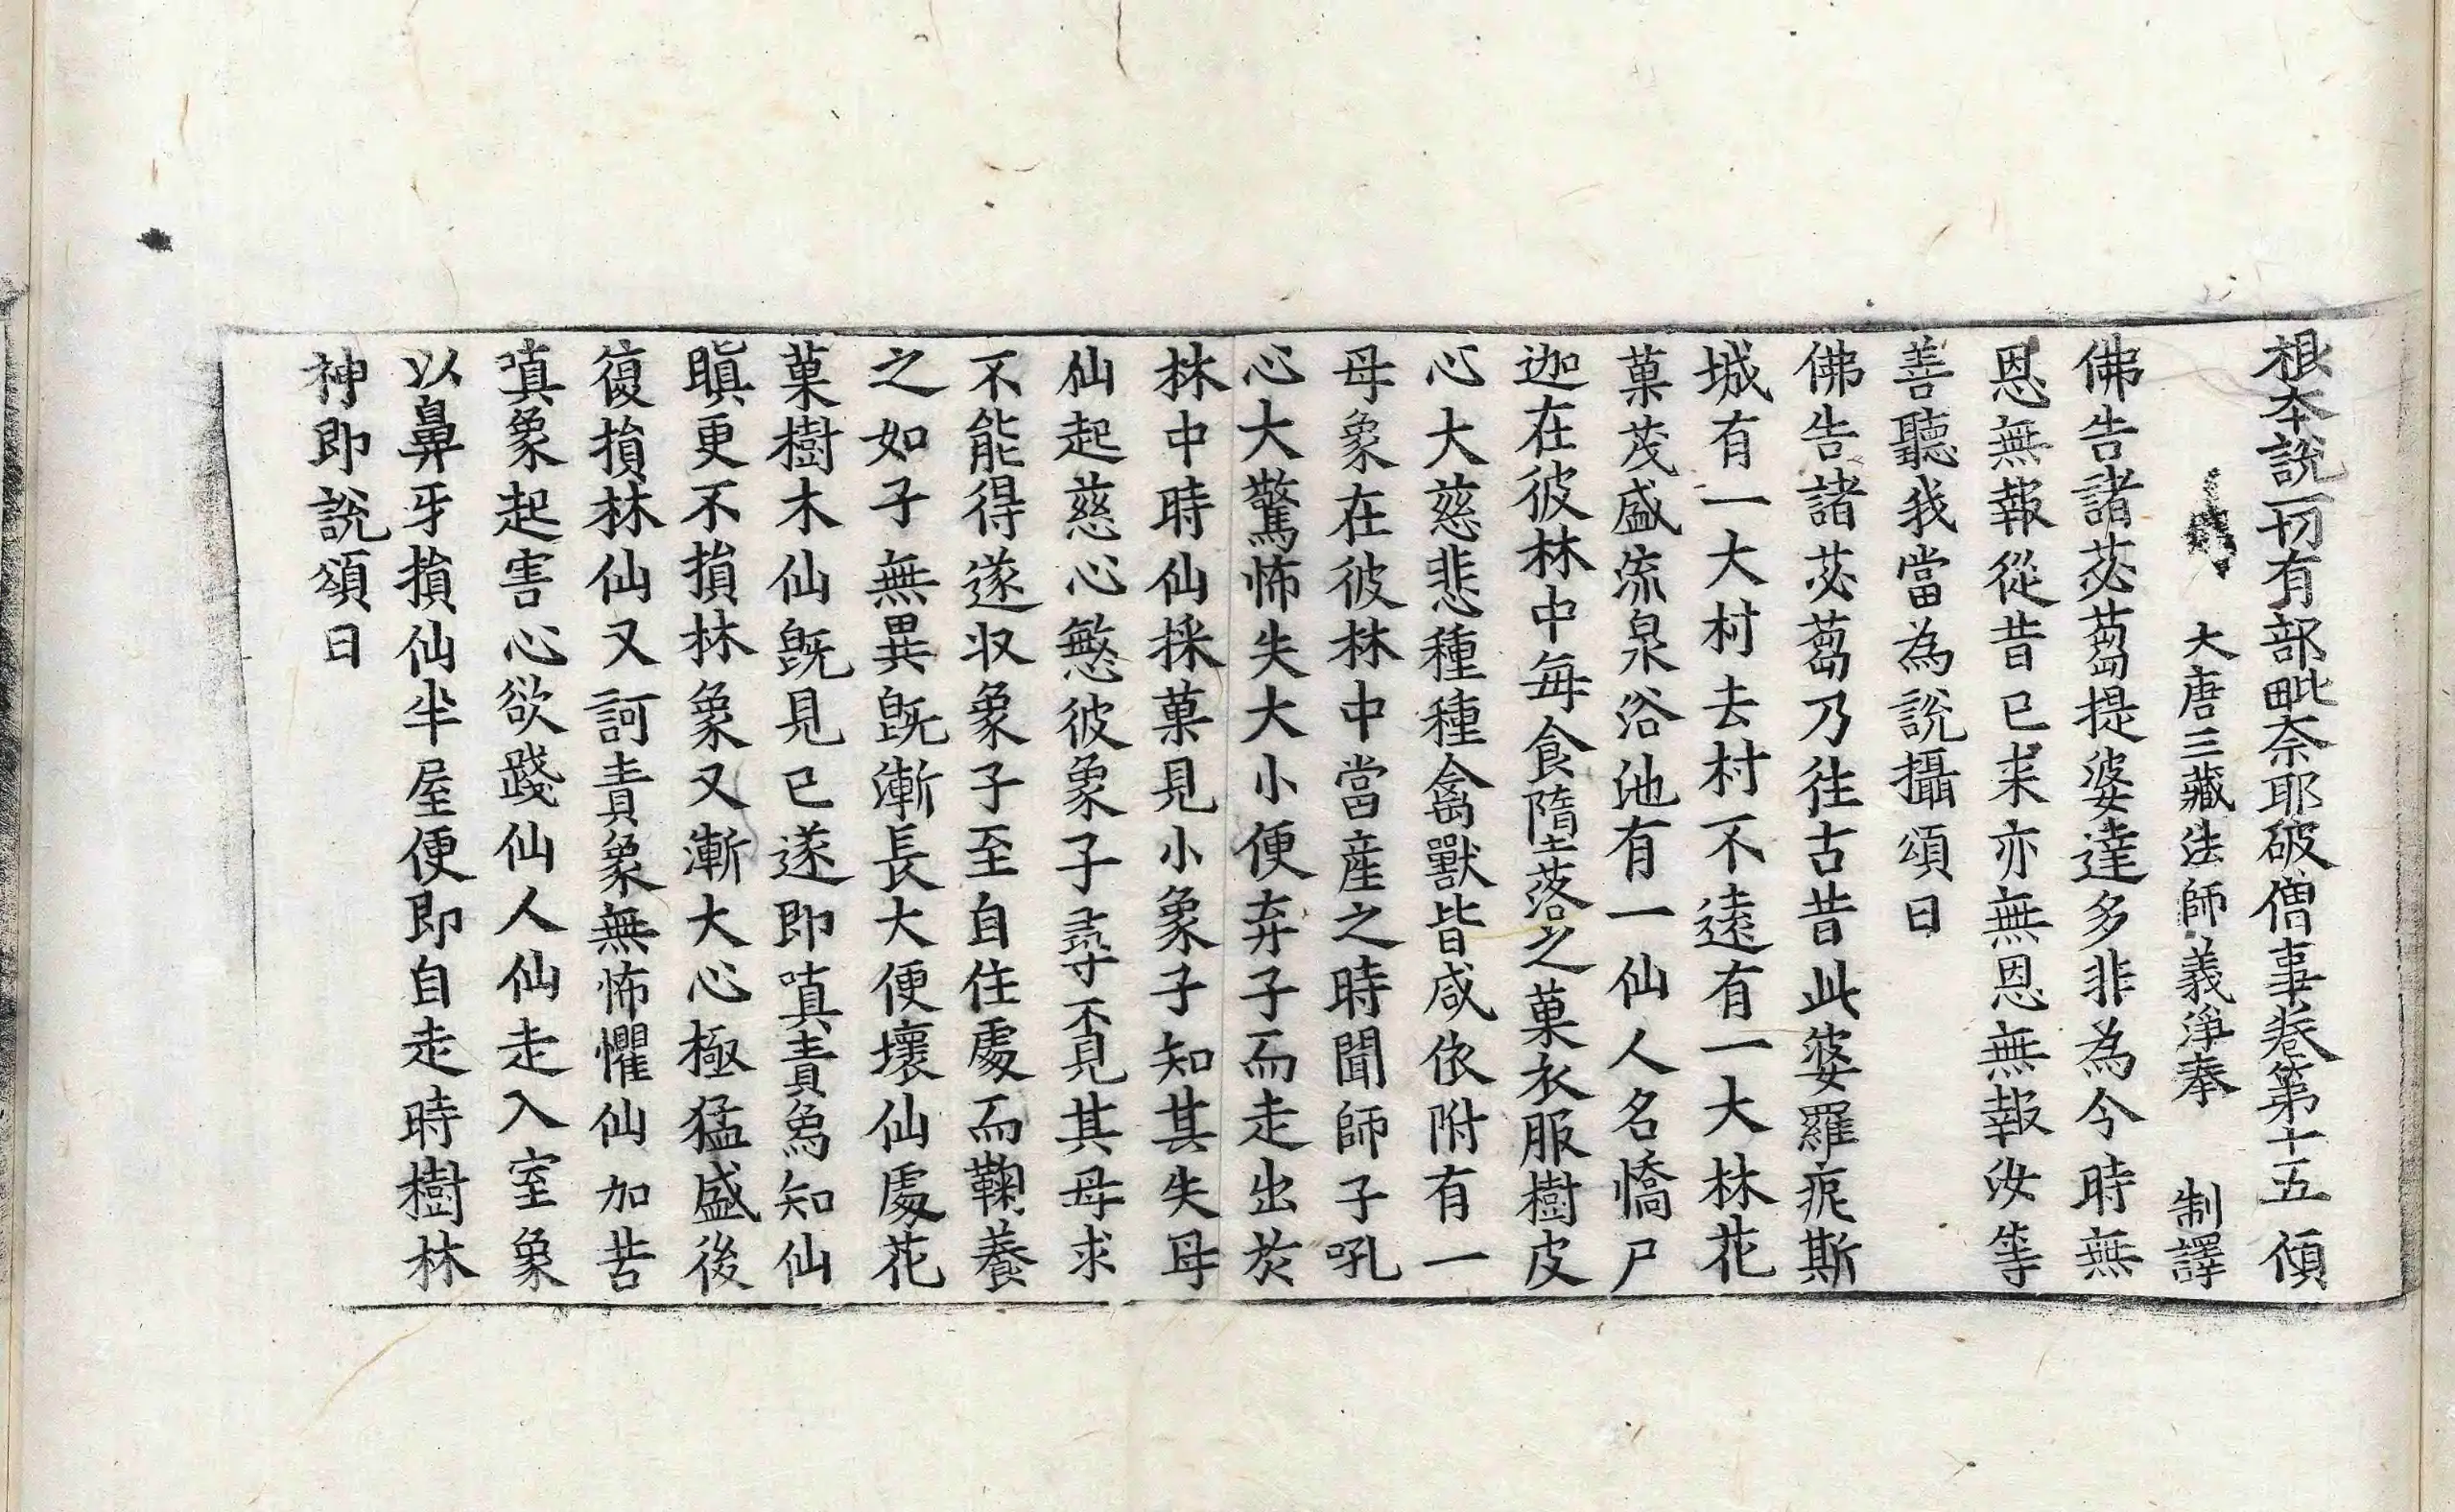 根夲説一切有部毗奈耶破僧事卷第十五 傾
大唐三藏法師義淨奉 制譯
佛告諸苾蒭提婆達多非為今時無
恩無報從昔已来亦無恩無報汝等
善聽我當為説攝頌曰
佛告諸苾蒭乃往古昔此婆羅痆斯
城有一大村去村不遠有一大林花
菓茂盛流泉浴池有一仙人名憍尸
迦在彼林中每食墮落之菓衣服樹皮
心大慈悲種種禽獸皆咸依附有一
母象在彼林中當産之時聞師子吼
心大驚怖失大小便弃子而走出於
林中時仙採菓見小象子知其失母
仙起慈心慜彼象子尋覓其母求
不能得遂収象子至自住處而鞠養
之如子無異既漸長大便壞仙處花
菓樹木仙既見已遂即嗔責象知仙
瞋更不損林象又漸大心極猛盛後
復損林仙又訶責象無怖懼仙加苦
嗔象起害心欲踐仙人仙走入室象
以鼻牙損仙半屋便即自走時樹林
神即説頌曰